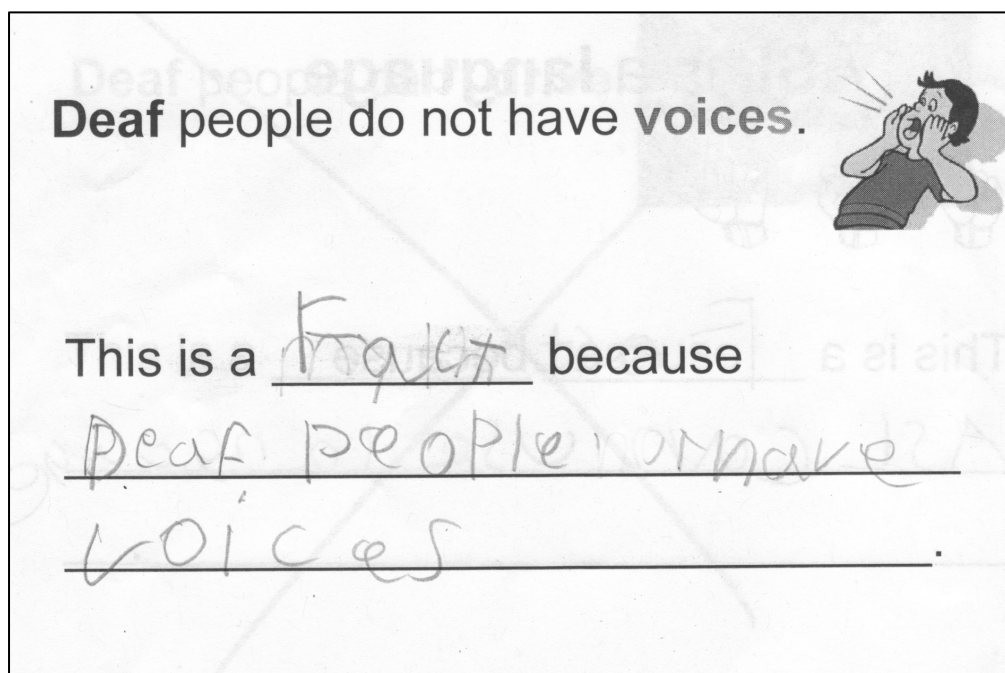 Deaf people do not have voices.
This is a Fact because
Deaf people have
voices.